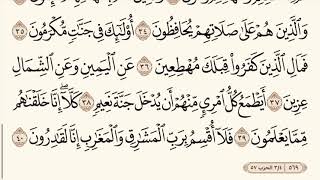 وَالَّذِينَ هُمْ عَلَىٰ صَلَاتِهِمْ يُحَافِظُونَ ٣٤ أُولَٰئِكَ فِي جَنَّاتٍ مُّكْرَمُونَ ٣٥
فَمَالِ الَّذِينَ كَفَرُوا قِبَلَكَ مُهْطِعِينَ ٣٦ عَنِ الْيَمِينِ وَعَنِ الشِّمَالِ
عِزِينَ ٣٧ أَيَطْمَعُ كُلُّ امْرِئٍ مِّنْهُمْ أَن يُدْخَلَ جَنَّةَ نَعِيمٍ ٣٨ كَلَّا إِنَّا خَلَقْنَاهُم
مِّمَّا يَعْلَمُونَ ٣٩ فَلَا أُقْسِمُ بِرَبِّ الْمَشَارِقِ وَالْمَغَارِبِ إِنَّا لَقَادِرُونَ ٤٠
٥٦٩ ٣/٤ الحزب ٥٧